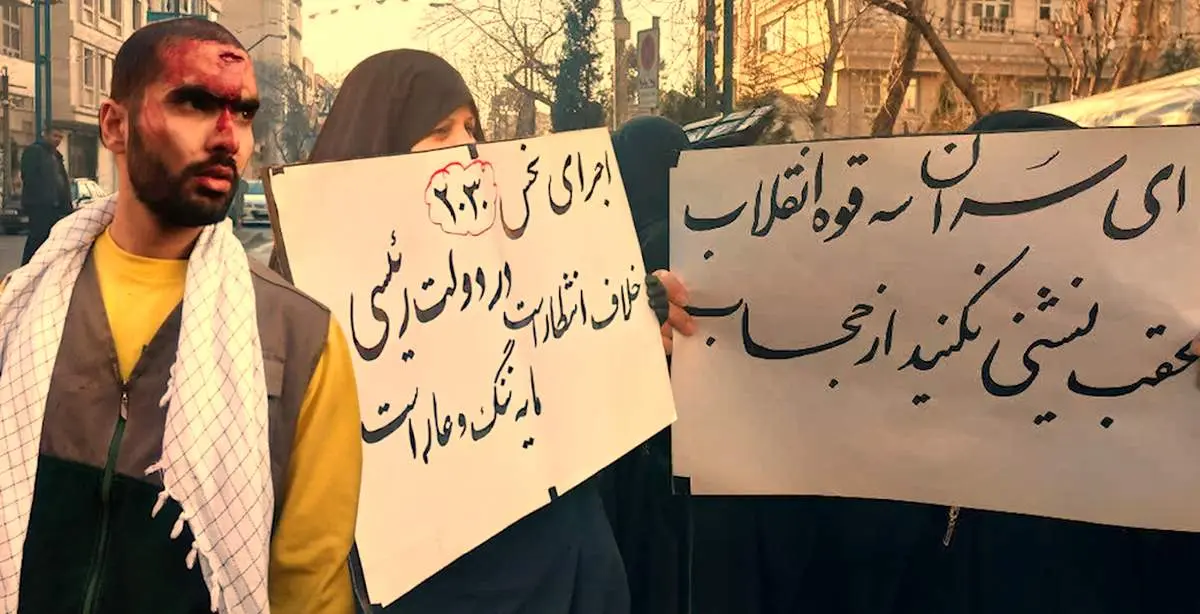 اجرای بخش
۲۰۳۰
در دولت رئیسی
خلاف انتظار است
مایه ننگ و عار است
ای سران سه قوه انقلاب
عقب نشینی نکنید از حجاب